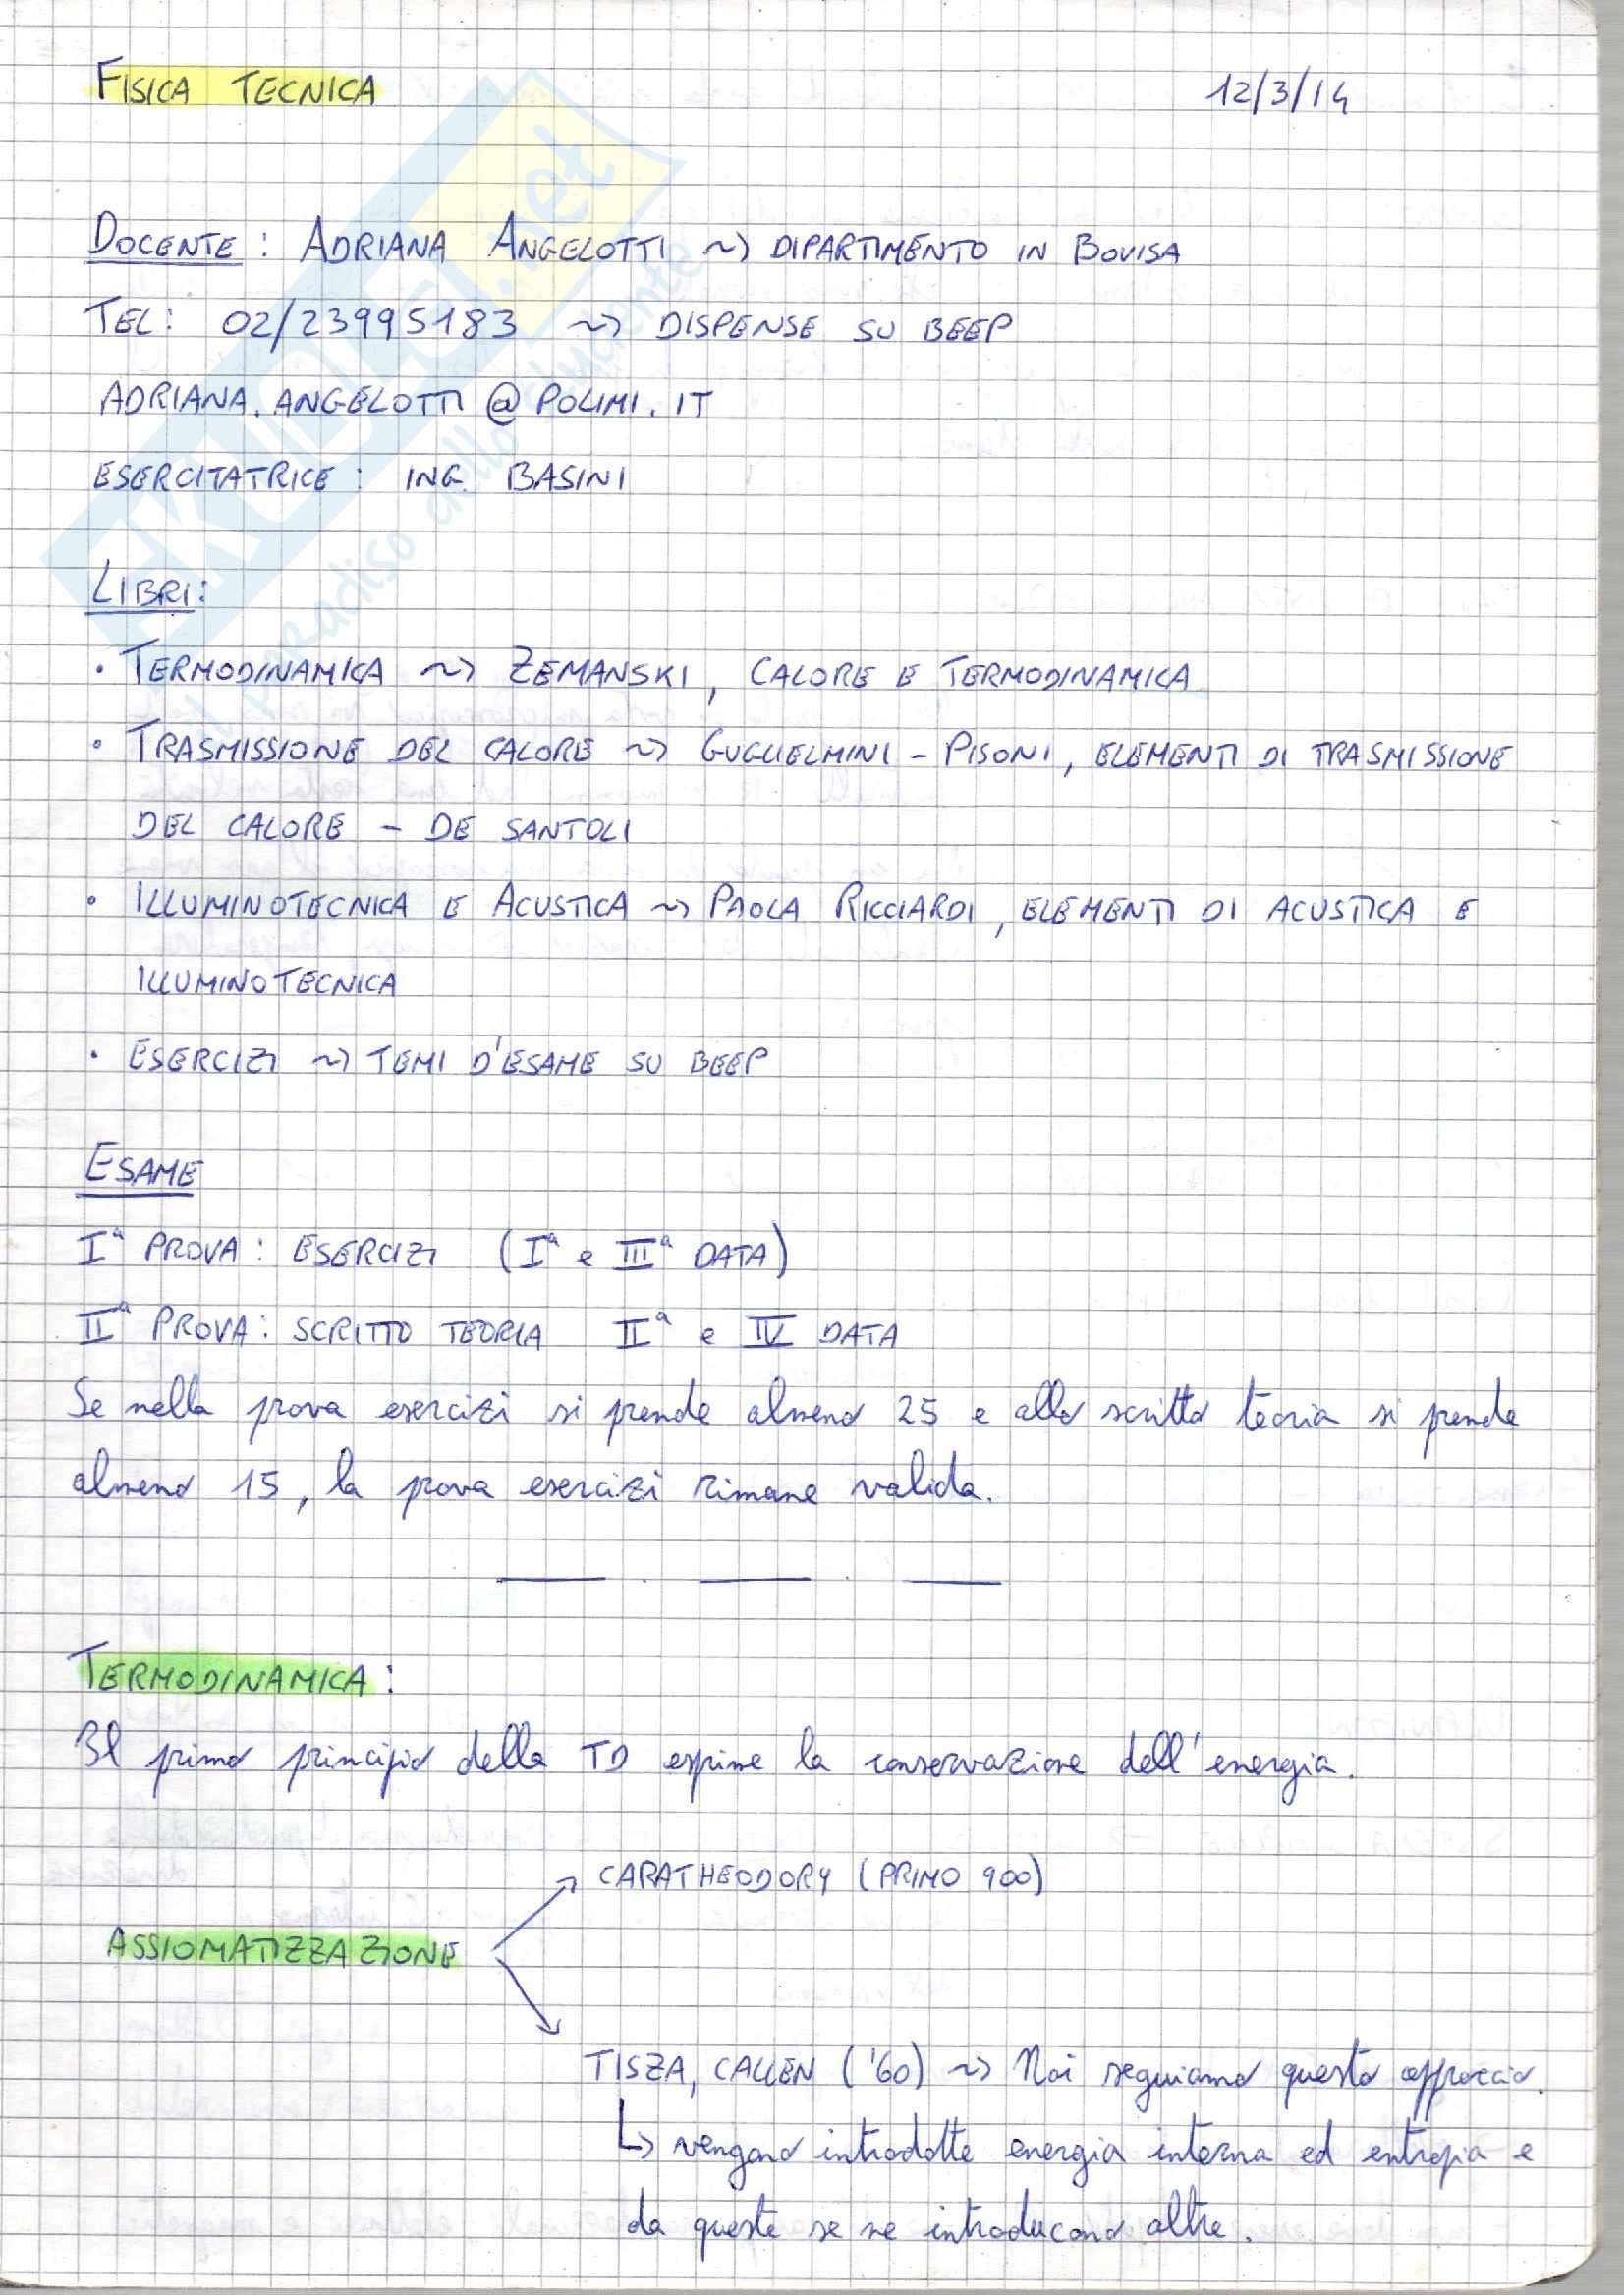 FISICA TECNICA 12/3/14
DOCENTE: ADRIANA ANGELOTTI ~> DIPARTIMENTO IN BOVISA
TEL: 02/23995183 ~> DISPENSE SU BEEP
ADRIANA.ANGELOTTI@POLIMI.IT
ESERCITATRICE: ING. BASINI
LIBRI:
• TERMODINAMICA ~> ZEMANSKI, CALORE E TERMODINAMICA
• TRASMISSIONE DEL CALORE ~> GUGLIELMINI - PISONI, ELEMENTI DI TRASMISSIONE
DEL CALORE - DE SANTOLI
• ILLUMINOTECNICA E ACUSTICA ~> PAOLA RICCIARDI, ELEMENTI DI ACUSTICA E
ILLUMINOTECNICA
• ESERCIZI ~> TEMI D'ESAME SU BEEP
ESAME
Iª PROVA: ESERCIZI (Iª e IIIª DATA)
IIª PROVA: SCRITTO TEORIA IIª e IV DATA
Se nella prova esercizi si prende almeno 25 e allo scritto teoria si prende
almeno 15, la prova esercizi rimane valida.
TERMODINAMICA:
Il primo principio della TD esprime la conservazione dell'energia.
CARATHEODORY (PRIMO 900)
ASSIOMATIZZAZIONE
TISZA, CALLEN ('60) ~> Noi seguiamo questo approccio.
↳ vengono introdotte energia interna ed entropia e
da queste se ne introducono altre.
SKUOLA.net
il paradiso dello studente